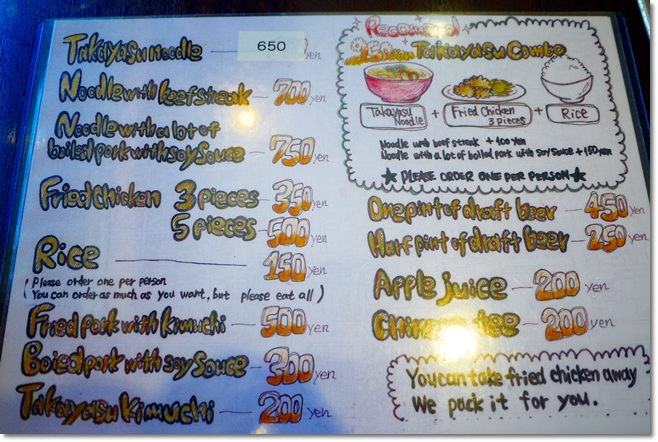 Takayasu noodle 650 yen
Noodle with beef steak 700 yen
Noodle with a lot of
boiled pork with soy sauce 750 yen
Fried chicken 3 pieces 350 yen
5 pieces 500 yen
Rice 150 yen
( Please order one per person
( You can order as much as you want, but please eat all )
Fried pork with kimuchi 500 yen
Boiled pork with soy sauce 300 yen
Takayasu kimuchi 200 yen
Recomend
Takayasu Combo
Takayasu Noodle + Fried Chicken 3 pieces + Rice
Noodle with beef steak + 100 yen
Noodle with a lot of boiled pork with soy sauce + 150 yen
★ PLEASE ORDER ONE PER PERSON ★
One pint of draft beer 450 yen
Half pint of draft beer 250 yen
Apple juice 200 yen
200 yen
You can take fried chicken away
We pack it for you.